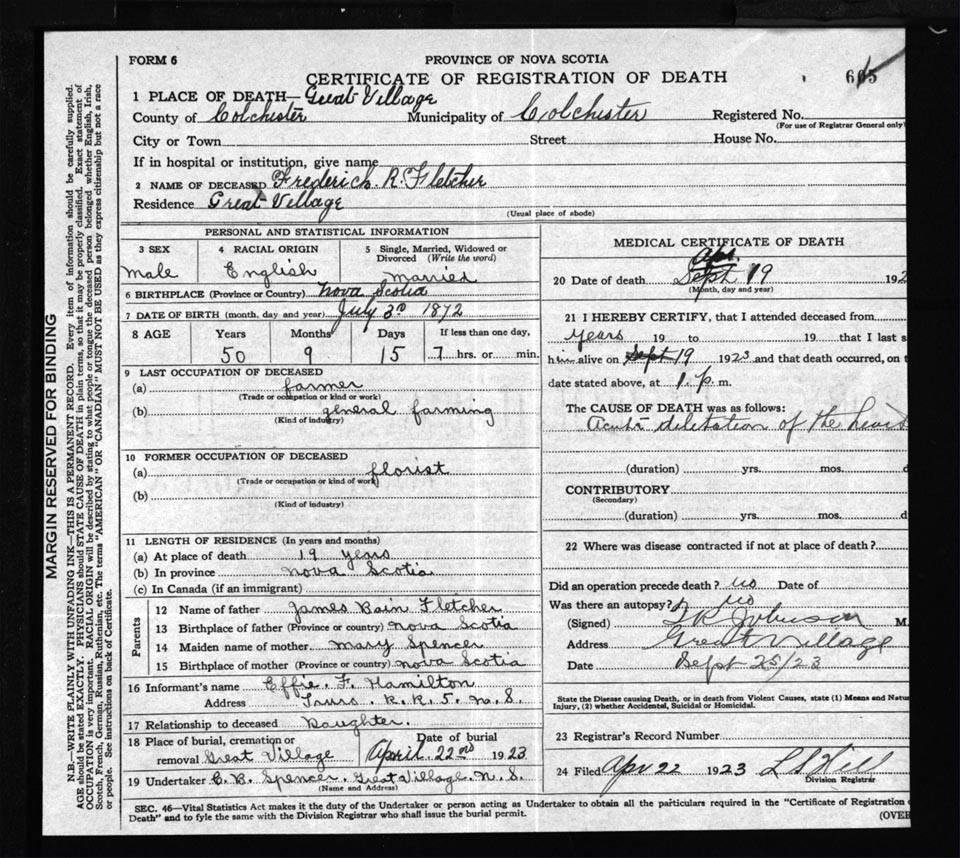 FORM 6
PROVINCE OF NOVA SCOTIA
CERTIFICATE OF REGISTRATION OF DEATH
1 PLACE OF DEATH—Great Village
County of Colchester Municipality of Colchester Registered No.
(For use of Registrar General only)
City or Town Street House No.
If in hospital or institution, give name
2 NAME OF DECEASED Frederick R. Fletcher
Residence Great Village
(Usual place of abode)
PERSONAL AND STATISTICAL INFORMATION
3 SEX 4 RACIAL ORIGIN 5 Single, Married, Widowed or Divorced (Write the word)
male English Married
6 BIRTHPLACE (Province or Country) Nova Scotia
7 DATE OF BIRTH (month, day and year) July 3rd 1872
8 AGE Years Months Days If less than one day,
50 9 15 7 hrs. or min.
9 LAST OCCUPATION OF DECEASED
(a) farmer
(Trade or occupation or kind of work)
(b) general farming
(Kind of industry)
10 FORMER OCCUPATION OF DECEASED
(a) florist
(Trade or occupation or kind of work)
(b)
(Kind of industry)
11 LENGTH OF RESIDENCE (In years and months)
(a) At place of death 19 years
(b) In province Nova Scotia
(c) In Canada (if an immigrant)
Parents
12 Name of father James Bain Fletcher
13 Birthplace of father (Province or country) Nova Scotia
14 Maiden name of mother Mary Spencer
15 Birthplace of mother (Province or country) Nova Scotia
16 Informant's name Effie. F. Hamilton
Address Truro. R. R. 5. N. S.
17 Relationship to deceased Daughter.
18 Place of burial, cremation or removal Great Village Date of burial April. 22nd 1923
19 Undertaker C. B. Spencer. Great Village. N. S.
(Name and Address)
MEDICAL CERTIFICATE OF DEATH
Apr.
20 Date of death Sept 19 192
(Month, day and year)
21 I HEREBY CERTIFY, that I attended deceased from
years 19 to 19 that I last s
him alive on Sept 19 1923 and that death occurred, on t
date stated above, at 1. p. m.
The CAUSE OF DEATH was as follows:
Acute diletation of the heart
(duration) yrs. mos. d
CONTRIBUTORY
(Secondary)
(duration) yrs. mos. d
22 Where was disease contracted if not at place of death?
Did an operation precede death? no Date of
Was there an autopsy? no
(Signed) Johnson M.
Address Great Village
Date Sept 25/23
State the Disease causing Death, or in death from Violent Causes, state (1) Means and Natu
Injury, (2) whether Accidental, Suicidal or Homicidal.
23 Registrar's Record Number
24 Filed Apr 22 1923 L S Hill
Division Registrar
SEC. 46—Vital Statistics Act makes it the duty of the Undertaker or person acting as Undertaker to obtain all the particulars required in the "Certificate of Registration o
Death" and to fyle the same with the Division Registrar who shall issue the burial permit.
(OVER
MARGIN RESERVED FOR BINDING
N.B.—WRITE PLAINLY WITH UNFADING INK—THIS IS A PERMANENT RECORD. Every item of information should be carefully supplied.
AGE should be stated EXACTLY. PHYSICIANS should STATE CAUSE OF DEATH in plain terms, so that it may be properly classified. Exact statement of
OCCUPATION is very important. RACIAL ORIGIN will be described by stating to what people or tongue the deceased person belonged whether English, Irish,
Scotch, French, German, Russian, Ruthenian, etc. The terms "AMERICAN" OR "CANADIAN" MUST NOT BE USED as they express citizenship but not a race
or people. See instructions on back of Certificate.